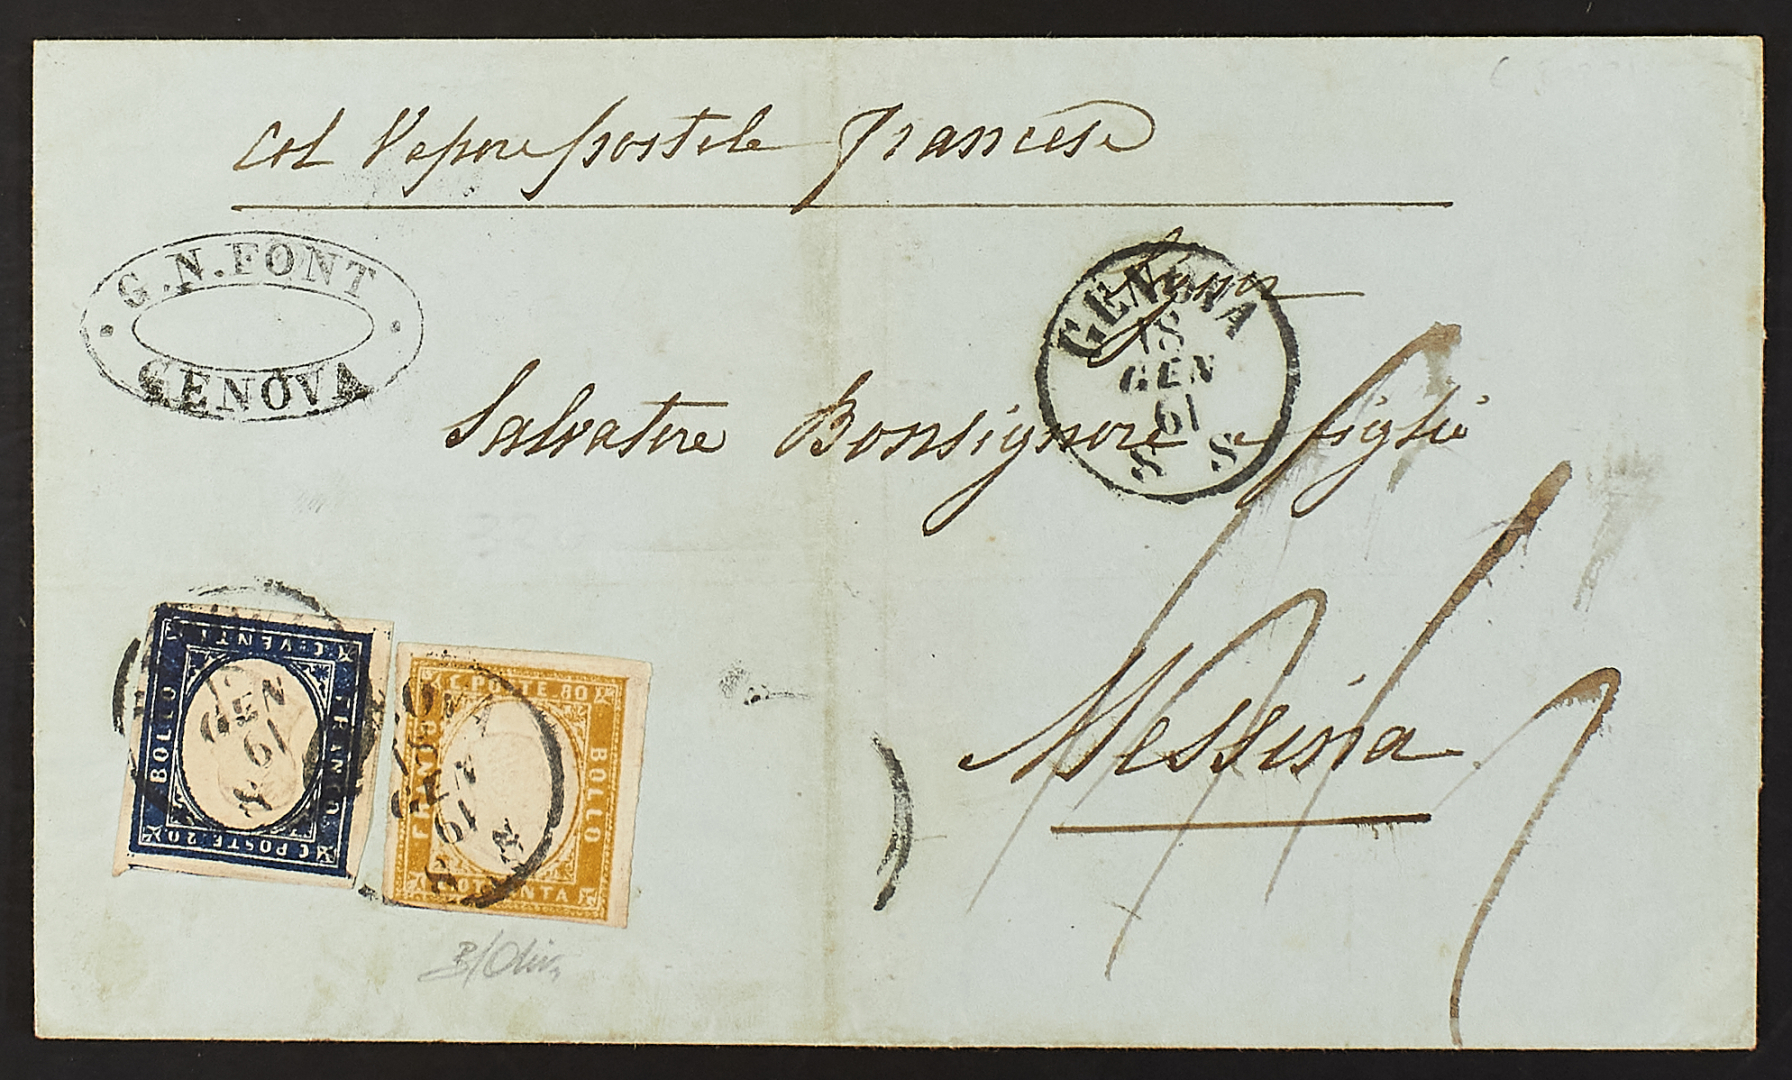 Col Vapore postale francese
G. N. FONT
GENOVA
GENOVA
18
GEN
61
S S
Salvatore Bonsignore e figlii
Messina
C. VENTI
BOLLO
FRANCO
C POSTE 20
GEN
61
C POSTE 80
FRANCO
BOLLO
C. OTTANTA
18
GEN
61